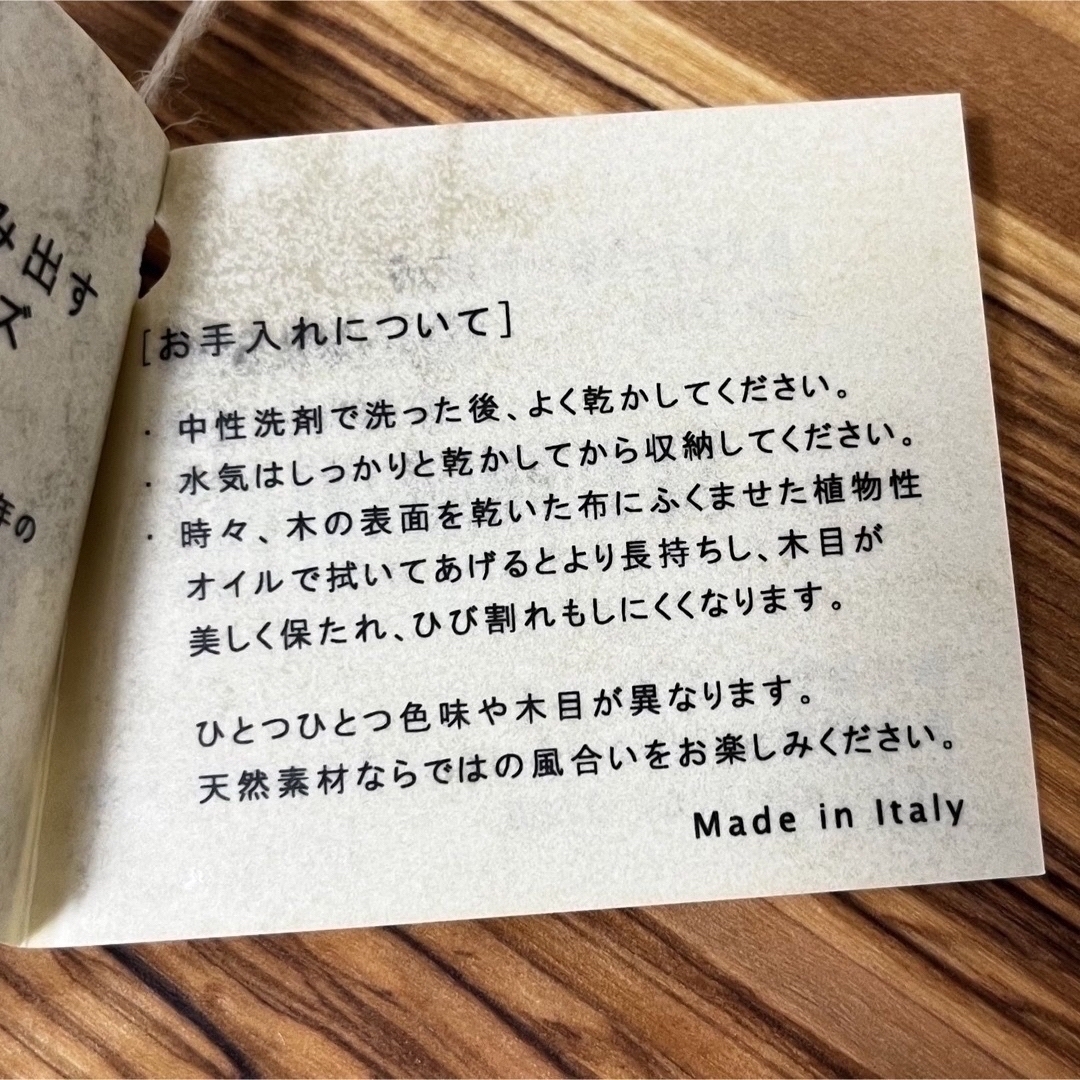 み出す
ズ
年の
[お手入れについて]
・中性洗剤で洗った後、よく乾かしてください。
・水気はしっかりと乾かしてから収納してください。
・時々、木の表面を乾いた布にふくませた植物性
オイルで拭いてあげるとより長持ちし、木目が
美しく保たれ、ひび割れもしにくくなります。
ひとつひとつ色味や木目が異なります。
天然素材ならではの風合いをお楽しみください。
Made in Italy